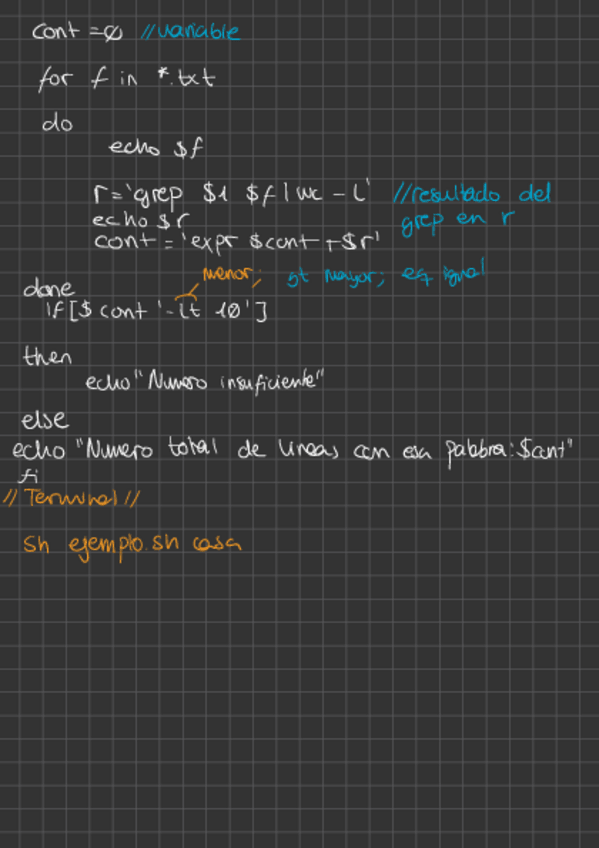 cont = 0 //variable
for f in *.txt
do
echo $f
r='grep $1 $f | wc -l' //resultado del
echo $r grep en r
cont = 'expr $cont + $r'
menor; gt mayor; eq igual
done
if [$ cont '-lt 10']
then
echo "Numero insuficiente"
else
echo "Numero total de lineas con esa palabra: $cont"
fi
// Terminal //
sh ejemplo.sh casa